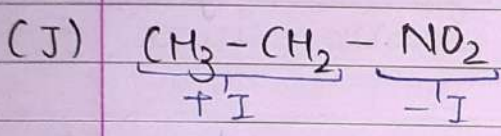 (J) CH₃ - CH₂ - NO₂
+I -I